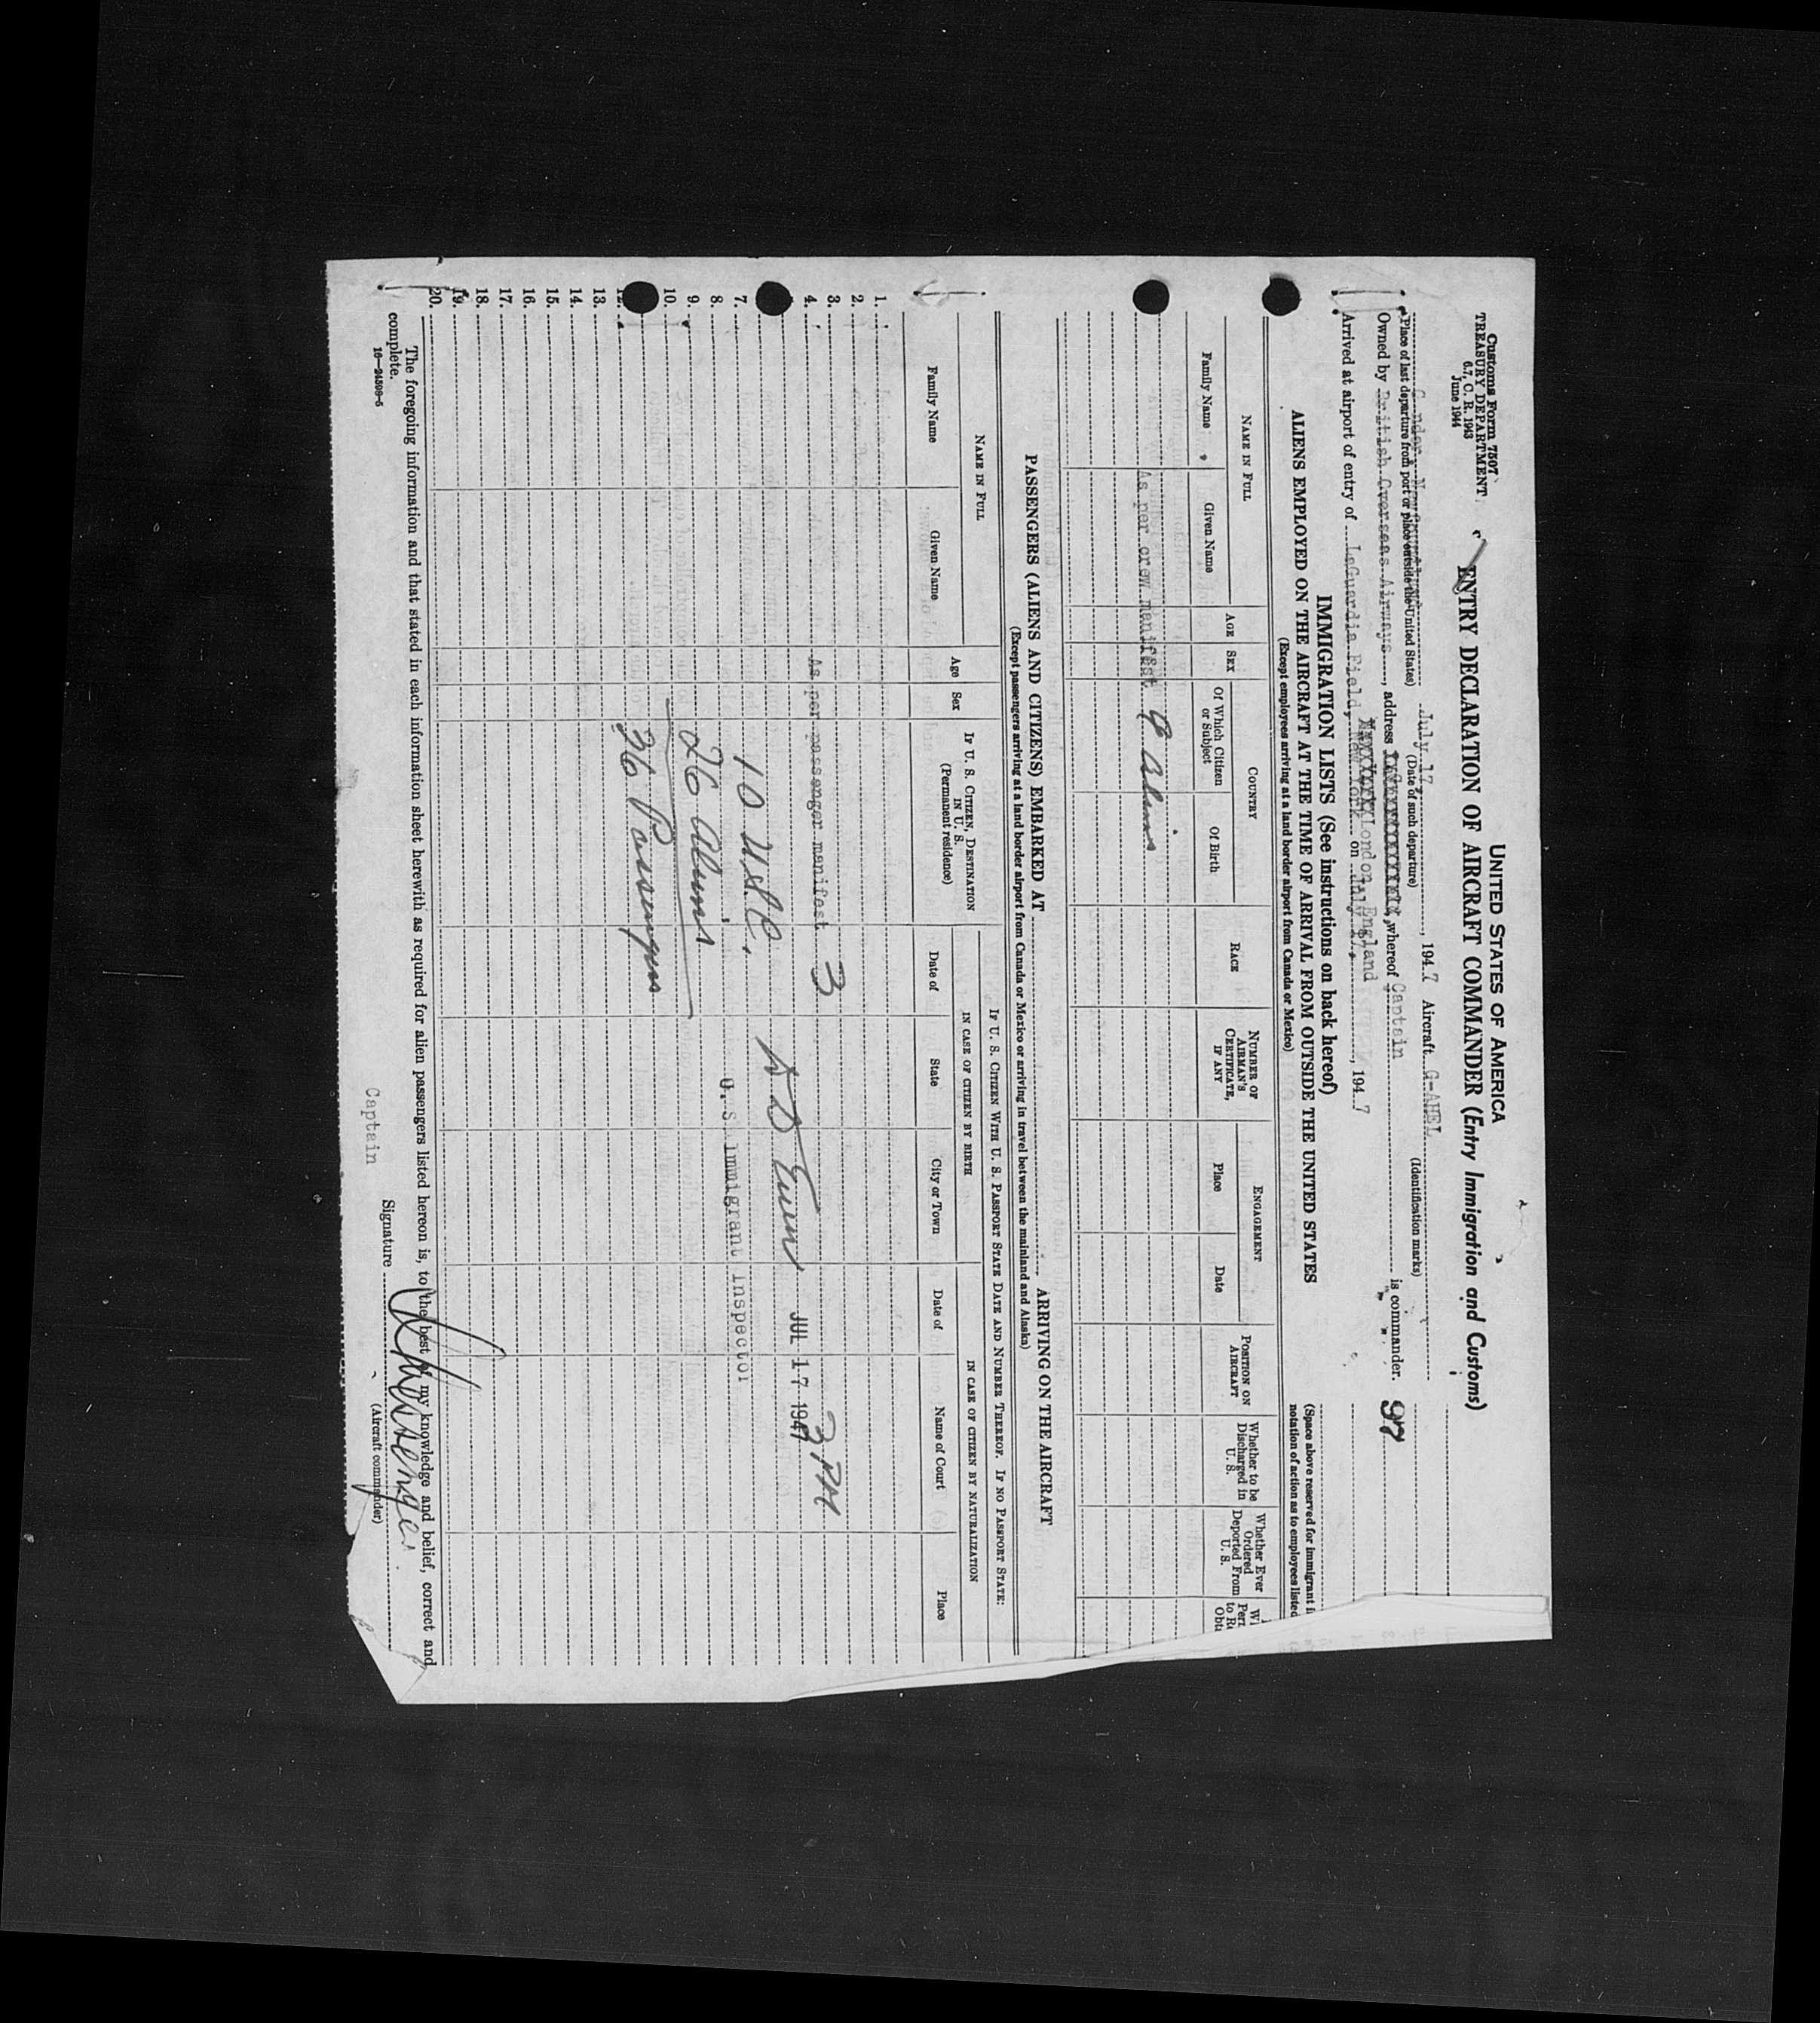 Customs Form 7507
TREASURY DEPARTMENT
6.7, C. R. 1943
June 1944
UNITED STATES OF AMERICA
ENTRY DECLARATION OF AIRCRAFT COMMANDER (Entry Immigration and Customs)
July 17, 1947 Aircraft G-AHEL
(Place of last departure from port or place outside the United States) (Date of such departure) (Identification marks)
Owned by British Overseas Airways, address London, England, whereof Captain is commander.
97
Arrived at airport of entry of LaGuardia Field, New York on July 17, 1947
IMMIGRATION LISTS (See instructions on back hereof)
ALIENS EMPLOYED ON THE AIRCRAFT AT THE TIME OF ARRIVAL FROM OUTSIDE THE UNITED STATES
(Except employees arriving at a land border airport from Canada or Mexico)
(Space above reserved for immigrant
notation of action as to employees listed
NAME IN FULL
Family Name
Given Name
AGE
SEX
COUNTRY
Of Which Citizen or Subject
Of Birth
RACE
NUMBER OF AIRMAN'S CERTIFICATE, IF ANY
ENGAGEMENT
Place
Date
POSITION ON AIRCRAFT
Whether to be Discharged in U. S.
Whether Ever Ordered Deported From U. S.
As per crew manifest 9 Aliens
PASSENGERS (ALIENS AND CITIZENS) EMBARKED AT ARRIVING ON THE AIRCRAFT
(Except passengers arriving at a land border airport from Canada or Mexico or arriving in travel between the mainland and Alaska)
NAME IN FULL
Family Name
Given Name
Age
Sex
IF U. S. CITIZEN, DESTINATION IN U. S.
(Permanent residence)
IF U. S. CITIZEN WITH U. S. PASSPORT STATE DATE AND NUMBER THEREOF. IF NO PASSPORT STATE:
IN CASE OF CITIZEN BY BIRTH
Date of
State
City or Town
IN CASE OF CITIZEN BY NATURALIZATION
Date of
Name of Court
Place
1.
2.
3.
4. As per passenger manifest 3 3 PM
JUL 17 1947
7. 10 USC.
U. S. Immigrant Inspector
8.
9. 26 Aliens
10.
36 Passengers
13.
14.
15.
16.
17.
18.
19.
20.
The foregoing information and that stated in each information sheet herewith as required for alien passengers listed hereon is, to the best of my knowledge and belief, correct and
complete.
16—24509-5
Signature
Captain
(Aircraft commander)